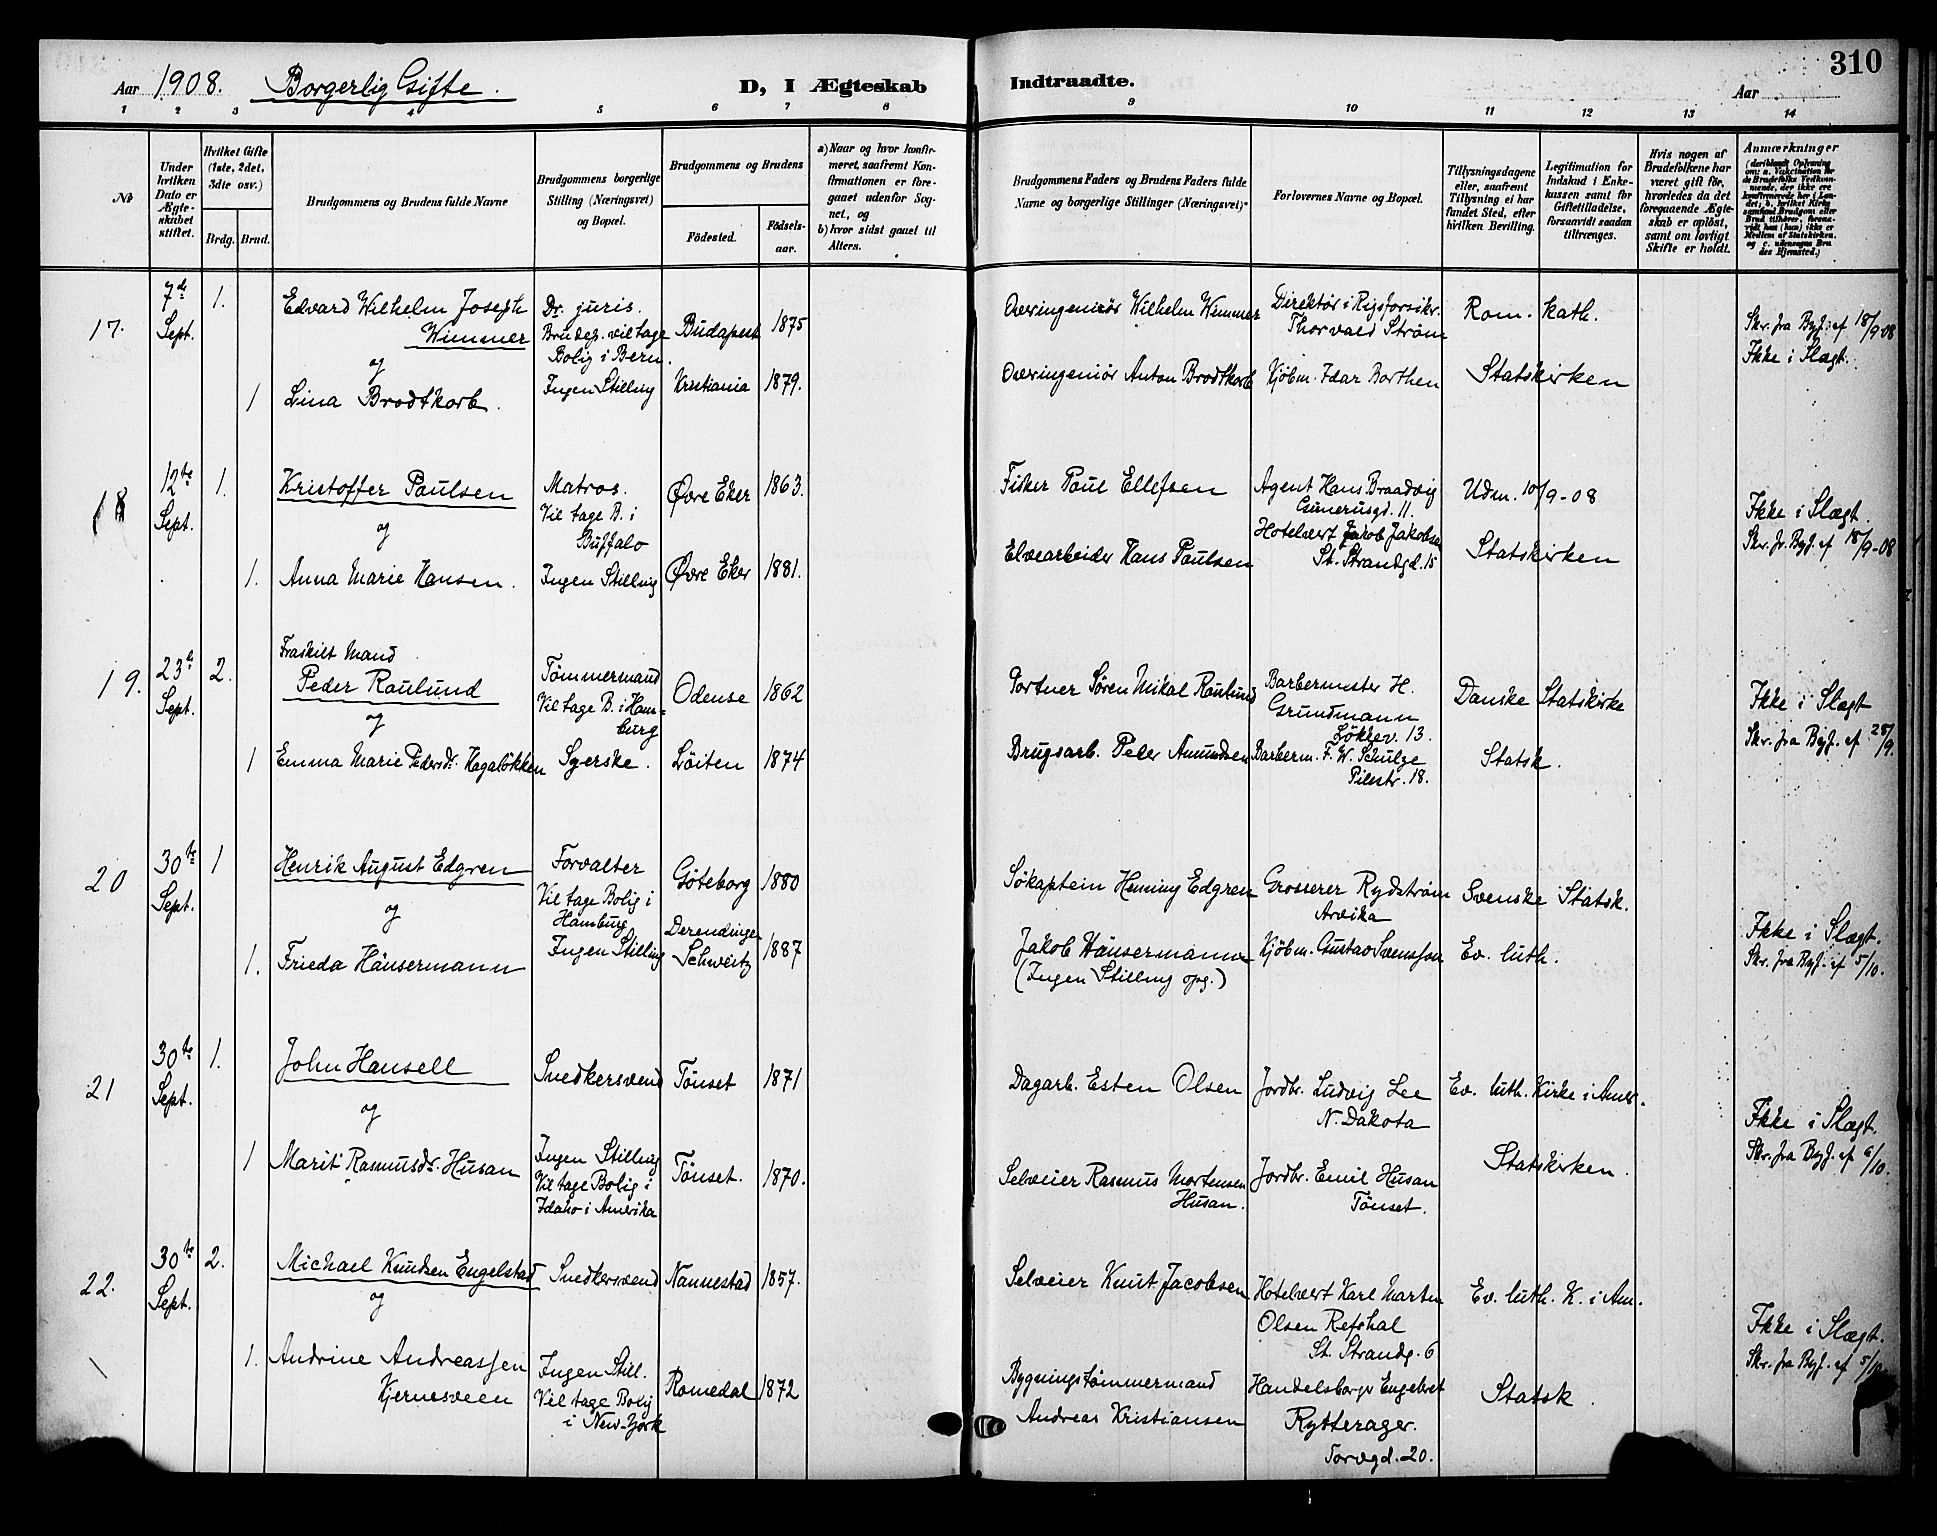 310
Aar 1908. Borgerlig Gifte. D, I Ægteskab Indtraadte. Aar
1 2 3 4 5 6 7 8 9 10 11 12 13 14
No
Under hvilken Dato er Ægteskabet stiftet.
Hvilket Gifte (1ste, 2det, 3die osv.)
Brdg. Brud.
Brudgommens og Brudens fulde Navne
Brudgommens borgerlige Stilling (Næringsvei) og Bopæl.
Brudgommens og Brudens
Fødested. Fødselsaar.
a) Naar og hvor konfirmeret, saafremt Konfirmationen er foregaaet udenfor Sognet, og
b) hvor sidst gaaet til Alters.
Brudgommens Faders og Brudens Faders fulde Navne og borgerlige Stillinger (Næringsvei)
Forlovernes Navne og Bopæl.
Tillysningsdagene eller, saafremt Tillysning ei har fundet Sted, efter hvilken Bevilling.
Legitimation for Indskud i Enkekassen samt for Giftetilladelse, forsaavidt saadan tiltrænges.
Hvis nogen af Brudefolkene har været gift før, hvorledes da det foregaaende Ægteskab er opløst, samt om lovligt Skifte er holdt.
Anmærkninger
17. 7de Sept. 1. Edvard Wilhelm Joseph Wimmer
Dr. juris. Brudep. vil tage Bolig i Bern.
Budapest 1875
Overingeniör Wilhelm Wimmer
Direktör i Rigsforsikr. Thorvald Ström
Rom. kath.
Skr. fra Byf. af 18/9 08
Ikke i Slægt.
og
1 Lina Brodtkorb.
Ingen Stilling
Kristiania 1879.
Overingeniör Anton Brodtkorb
Kjöbm. Idar Borthen
Statskirken
18 12te Sept. 1. Kristoffer Paulsen
Matros. Vil tage B. i Buffalo
Øvre Eker 1863.
Fisker Paul Ellefsen
Agent Hans Braadvig Gunerusgd. 11.
Udm. 10/9-08
Ikke i Slægt.
Skr. fr. Byf. af 18/9-08
og
1. Anna Marie Hansen.
Ingen Stilling
Øvre Eker 1881.
Elvearbeider Hans Paulsen
Hotelvært Jakob Jakobsen St. Strandgd. 15
Statskirken
19. 23de Sept. 2. Fraskilt Mand
Peder Raulund
Tømmermand Vil tage B. i Hamburg
Odense 1862
Portner Søren Mikal Raulund
Barbermester H. Grundmann Løkkev. 13.
Danske Statskirke
Ikke i Slægt
Skr. fra Byf. af 28/9.
og
1 Emma Marie Pedersdr. Hagaløkken
Syerske.
Löiten 1874
Brugsarb. Peder Amundsen
Barberm. F. W. Schulze Pilestr. 18.
Statsk.
20 30te Sept. 1 Henrik August Edgren
Forvalter Vil tage Bolig i Hamburg
Göteborg 1880
Søkaptein Henning Edgren
Grosserer Rydström Arvika
Svenske Statsk.
Ikke i Slægt.
Skr. fra Byf. af 5/10.
og
1. Frieda Häusermann
Ingen Stilling
Derendingen Schweitz 1887
Jakob Häusermann (Ingen Stilling opg.)
Kjöbm. Gustav Svensson
Ev. luth.
21 30te Sept. 1. John Hansell
Snedkersvend
Tönset 1871
Dagarb. Esten Olsen
Jordbr. Ludvig Lee N. Dakota
Ev. luth. Kirke i Amer.
Ikke i Slægt.
Skr. fra Byf. af 6/10.
og
1 Marit Rasmusdr. Husan
Ingen Stilling Vil tage Bolig i Idaho i Amerika
Tönset. 1870.
Selveier Rasmus Mortensen Husan.
Jordbr. Emil Husan Tönset.
Statskirken.
22. 30te Sept. 2. Michael Knudsen Engelstad
Snedkersvend
Nannestad 1857.
Selveier Knut Jacobsen
Hotelvært Karl Martin Olsen Refshal St. Strandg. 6
Ev. luth. K. i Am.
Ikke i Slægt.
Skr. fra Byf. af 5/10
og
1. Andrine Andreassen Kjernsveen
Ingen Still. Vil tage Bolig i New-York
Romedal 1872
Bygningstömmermand Andreas Kristiansen
Handelsborger Engebret Rytterager. Torvgd. 20.
Statsk.